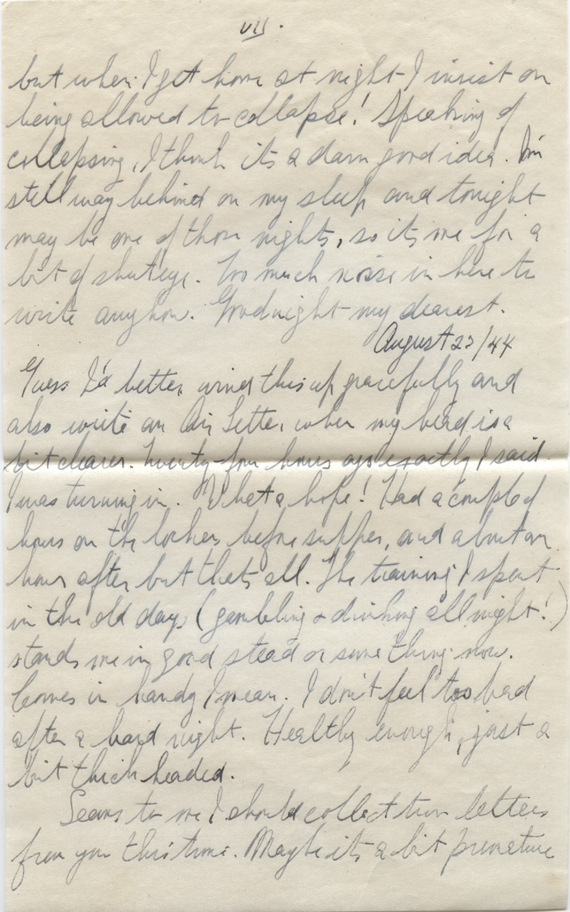 VII.
but when I get home at night I insist on
being allowed to collapse! Speaking of
collapsing, I think its a darn good idea. I'm
still way behind on my sleep and tonight
may be one of those nights, so its me for a
bit of shuteye. Too much noise in here to
write anyhow. Goodnight my dearest.
August 23/44
Guess I'd better wind this up gracefully and
also write an Air Letter when my head is a
bit clearer. Twenty-four hours ago exactly I said
I was turning in. What a hope! Had a couple of
hours on the lockers before supper, and about an
hour after but thats all. The training I spent
in the old days (gambling & drinking all night!)
stands me in good stead or something now.
Comes in handy I mean. I don't feel too bad
after a hard night. Healthy enough, just a
bit thick headed.
Seems to me I should collect two letters
from you this time. Maybe its a bit premature